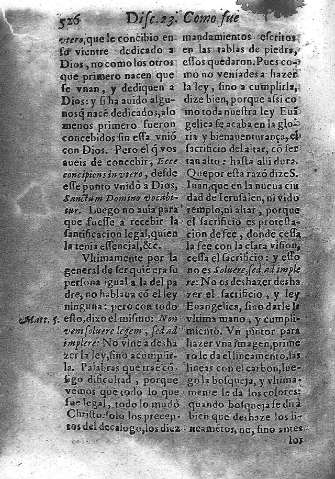 526 Disc. 23. Como fue
vtero, que le concibio en
su vientre dedicado a
Dios, no como los otros
que primero nacen que
se vnan, y dediquen a
Dios: y si ha auido algu-
nos q̃ nacē dedicados, alo
menos primero fueron
concebidos sin essa vniō
con Dios. Pero el q̃ vos
aueis de concebir, Ecce
concipies in vtero, desde
esse punto vnido à Dios,
Sanctum Domino vocabi-
tur. Luego no auia para
que fuesse a recebir la
santificacion legal, quien
la tenia essencial, &c.
Vltimamente por la
general de ser quiē era su
persona igual a la del pa-
dre, no hablaua cō el ley
ninguna: pero con todo
Matt. 5. esso, dizo el mismo: Non
veni soluere legem, sed ad
implere: No vine a desha-
zer la ley, sino a cumplir-
la. Palabras que traē cō-
sigo dificultad, porque
vemos que todo lo que
fue legal, todo lo mudò
Christo: solo los precep-
tos del decalogo, los diez
mandamientos escritos
en las tablas de piedra,
essos quedaron. Pues co-
mo no veniades a hazer
la ley, sino a cumplirla,
dize bien, porque assi co-
mo toda nuestra ley Euā-
gelica se acaba en la glo-
ria y bienauenturança, el
sacrificio del altar, cō ser
tan alto: hasta alli dura.
Que por esta razō dize S.
Iuan, que en la nueua ciu-
dad de Ierusalen, ni vido
templo, ni altar, porque
el sacrificio es protesta-
cion de fee, donde cessa
la fee con la clara vision,
cessa el sacrificio: y esso
no es Soluere, sed ad imple
re: No es deshazer desha
zer el sacrificio, y ley
Euangelica, sino darle la
vltima mano, y cumpli-
miento. Vn pintor para
hazer vna imagen, prime
ro le da el lineamento, las
lineas con el carbon, lue-
go la bosqueja, y vltima-
mente le da los colores:
quando bosqueja se dirà
bien que deshaze los li-
neamētos, no, sino antes
los